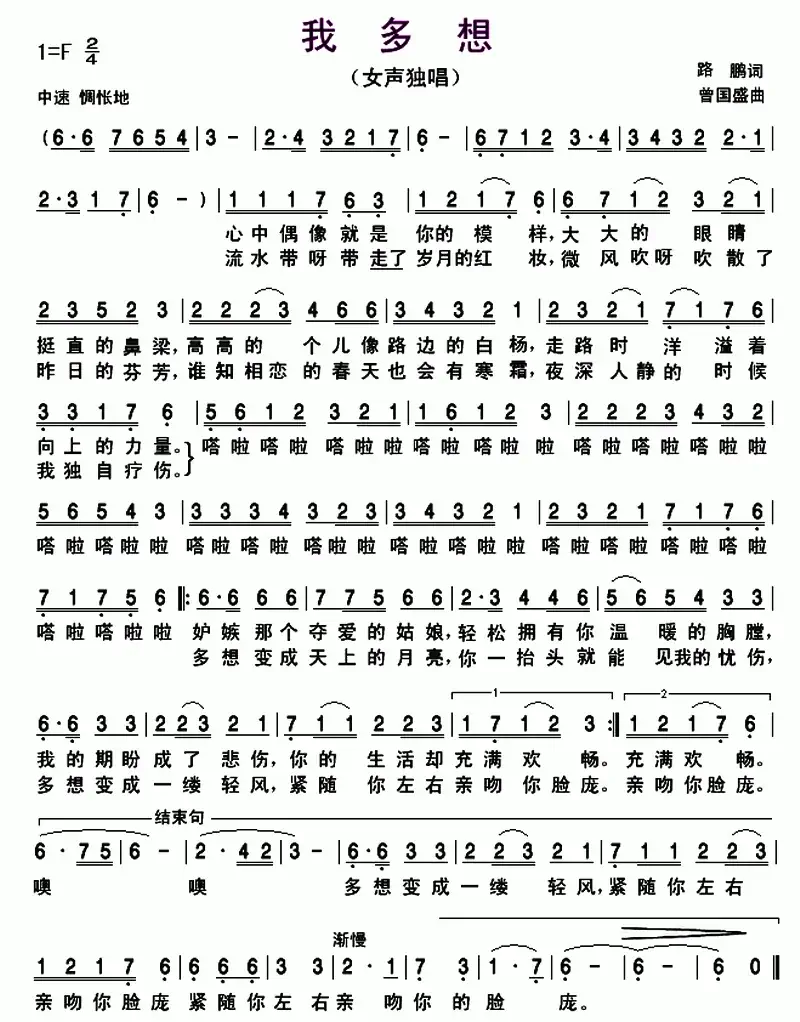 我 多 想
1=F 2/4
（女声独唱）
路 鹏词
中速 惆怅地
曾国盛曲
(6·6 7654 | 3 - | 2·4 3217 | 6 - | 6712 3·4 | 3432 2·1 |
2·3 17 | 6 - ) | 1117 63 | 12176 | 6712 321 |
心中偶像就是 你的模 样,大大的 眼睛
流水带呀带走了岁月的红 妆,微风吹呀吹散了
23523 | 2223 466 | 34321 | 2321 7176 |
挺直的鼻梁,高高的 个儿像路边的白杨,走路时 洋 溢着
昨日的芬芳,谁知相恋的春天也会有寒霜,夜深人静的 时候
33176 | 5612 321 | 16123 | 2234 432 |
向上的力量。嗒啦嗒啦 嗒啦嗒啦嗒啦 啦 嗒啦嗒啦嗒啦啦
我独自疗伤。
56543 | 3334 323 | 34321 | 2321 7176 |
嗒啦嗒啦啦 嗒啦嗒啦 嗒啦啦 嗒啦嗒啦啦 嗒啦嗒啦嗒啦嗒啦
71756 :6·6 66 | 77566 | 2·3 446 | 56543 3 |
嗒啦嗒啦啦 妒嫉那个夺爱的姑娘,轻松拥有你温 暖的胸膛,
多想变成天上的月亮,你一抬头就能 见我的忧伤,
1 2
6·6 33 | 223 21 | 711 223 | 1712 3 :| 1217 6 |
我的期盼成了 悲伤,你的 生活却充满欢 畅。充满欢 畅。
多想变成一缕 轻风,紧随 你左右亲吻你脸庞。亲吻你脸庞。
结束句
6·75 | 6 - | 2·42 | 3 - | 6·6 33 | 223 21 | 711 223 |
噢 噢 多想变成一缕 轻风,紧随你左右
渐慢
1217 6 | 66 66 | 33 2·1 | 7 3 | 1·7 | 6 - | 6 - | 6 0 ‖
亲吻你脸庞 紧随你左 右亲 吻你 的脸 庞。